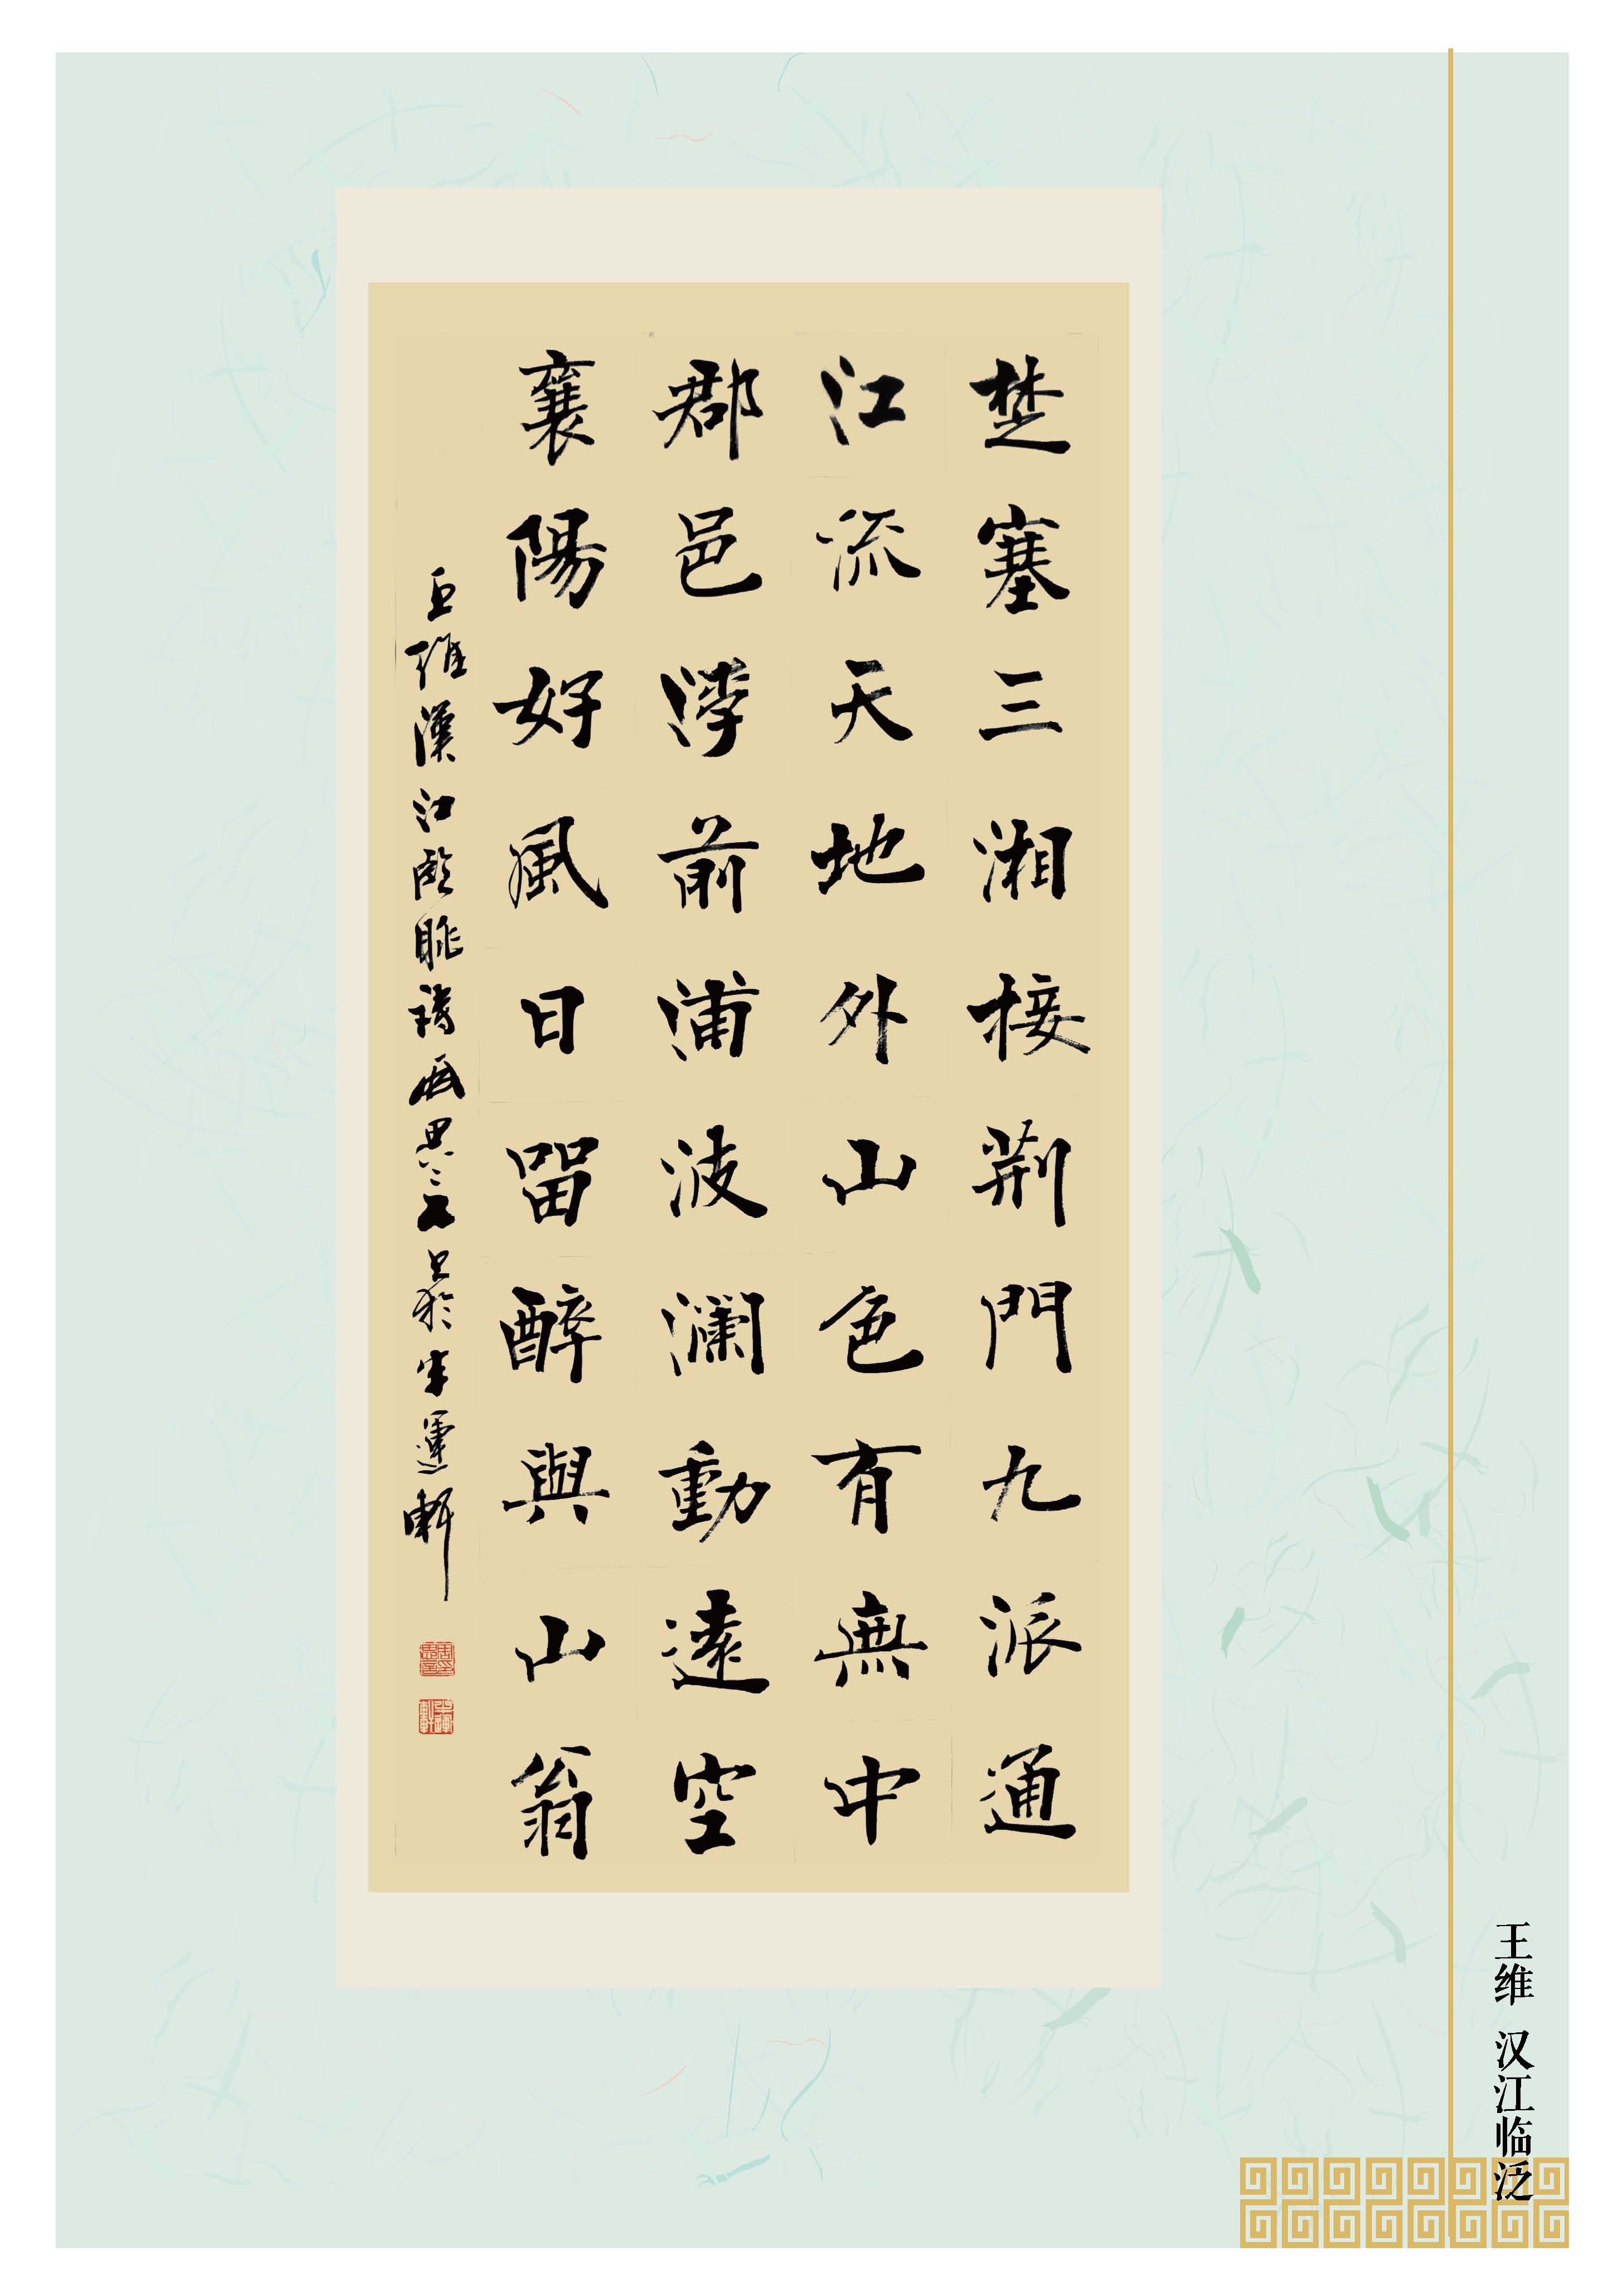 楚塞三湘接荆門九派通
江流天地外山色有無中
郡邑浮前浦波瀾動遠空
襄陽好風日留醉與山翁
王維漢江臨眺詩於半運軒
王维 汉江临泛